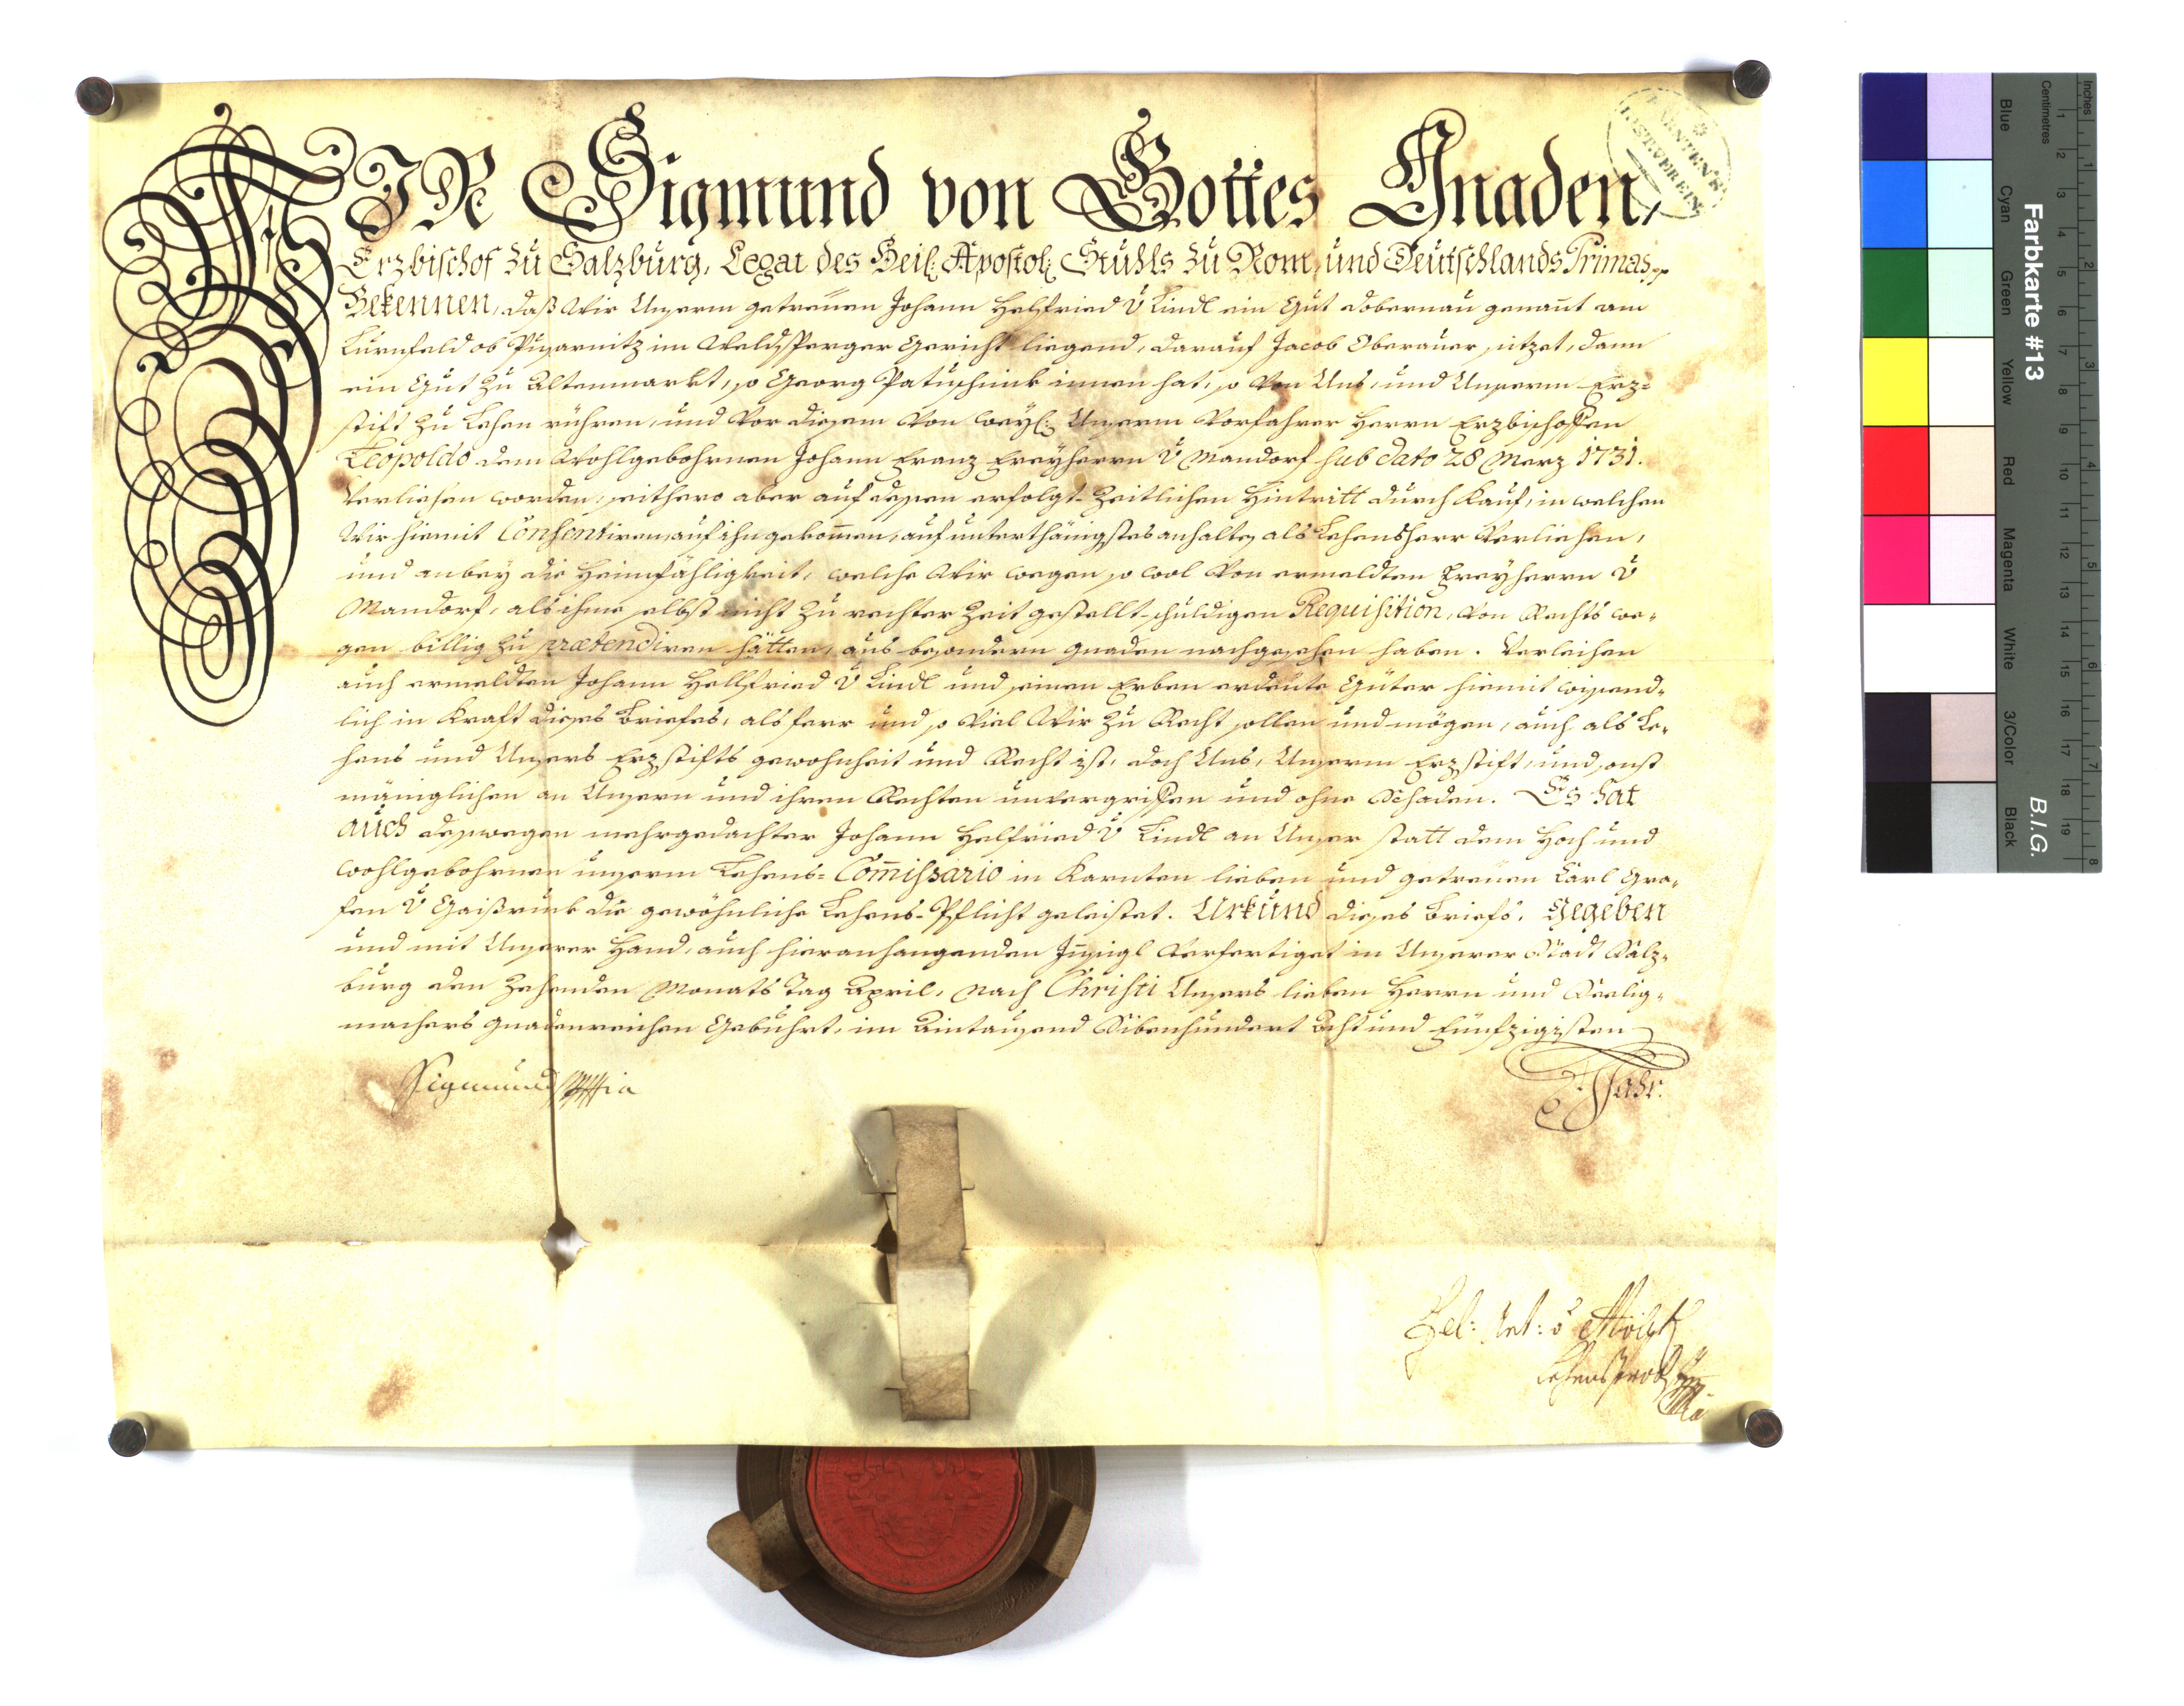 WIR Sigmund von Gottes Gnaden,
Erzbischof zu Salzburg, Legat des Heil: Apostol: Stuhls zu Rom, und Deutschlands Primas,
Bekennen, daß Wir Unserm getreuen Johann Helfried v Lindl ein Gut Dobernau genant am
Lurnfeld ob Pusarnitz im Veldsperger Gericht liegend, darauf Jacob Oberauer sitzet, dann
ein Gut zu Altenmarkt, so Georg Patuschnick innen hat, so von Uns, und Unserm Erz-
stift zu Lehen rühren, und vor diesem von weyl: Unserm Vorfahrer Herrn Erzbischoffen
Leopoldo dem Wohlgebohrnen Johann Franz Freyherrn v Mandorf sub dato 28 Merz 1731.
Verliehen worden, seithero aber auf dessen erfolgt-zeitlichen Hintritt durch Kauf, in welchen
Wir hiemit Consentiren, auf ihn gekomen, auf unterthänigstes anhalten als Lehensherr Verliehen,
und anbey die Heimfähligkeit, welche Wir wegen so wol von ermeldten Freyherrn v
Mandorf, als ihme selbst nicht zu rechter Zeit gestellt-schuldigen Requisition, von Rechts we-
gen billig zu prætendiren hätten, aus besondern gnaden nachgesehen haben. Verleihen
auch ermeldten Johann Hellfried v Lindl und seinen Erben erdeute Güter hiemit wissend-
lich in Kraft dieses Briefes, als ferr und so viel Wir zu Recht sollen und mögen, auch als Le-
hens und Unsers Erzstifts gewohnheit und Recht ist, doch Uns, Unserm Erzstift, und sonst
mäniglichen an Unsern und ihren Rechten unvergriffen und ohne Schaden. Es hat
auch desswegen mehrgedachter Johann Helfried v Lindl an Unser statt dem Hoch und
wohlgebohrnen unserm Lehens-Comissario in Karnten lieben und getreuen Carl Gra-
fen v Gaißruck die gewöhnliche Lehens-Pflicht geleistet. Urkund dieses Briefs. Gegeben
und mit Unserer Hand, auch hieranhangenden Insigl Verfertiget in Unserer Stadt Salz-
burg den Zehenden Monats Tag April, nach Christi Unsers lieben Herrn und Seelig-
machers gnadenreichen Gebuhrt, im Aintausend Sibenhundert Acht und Fünfzigisten
Jahr.
Sigmund
Fel: Ant: v Mölk
Farbkarte #13
B.I.G.
Inches
Centimetres
Blue
Cyan
Green
Yellow
Red
Magenta
White
3/Color
Black